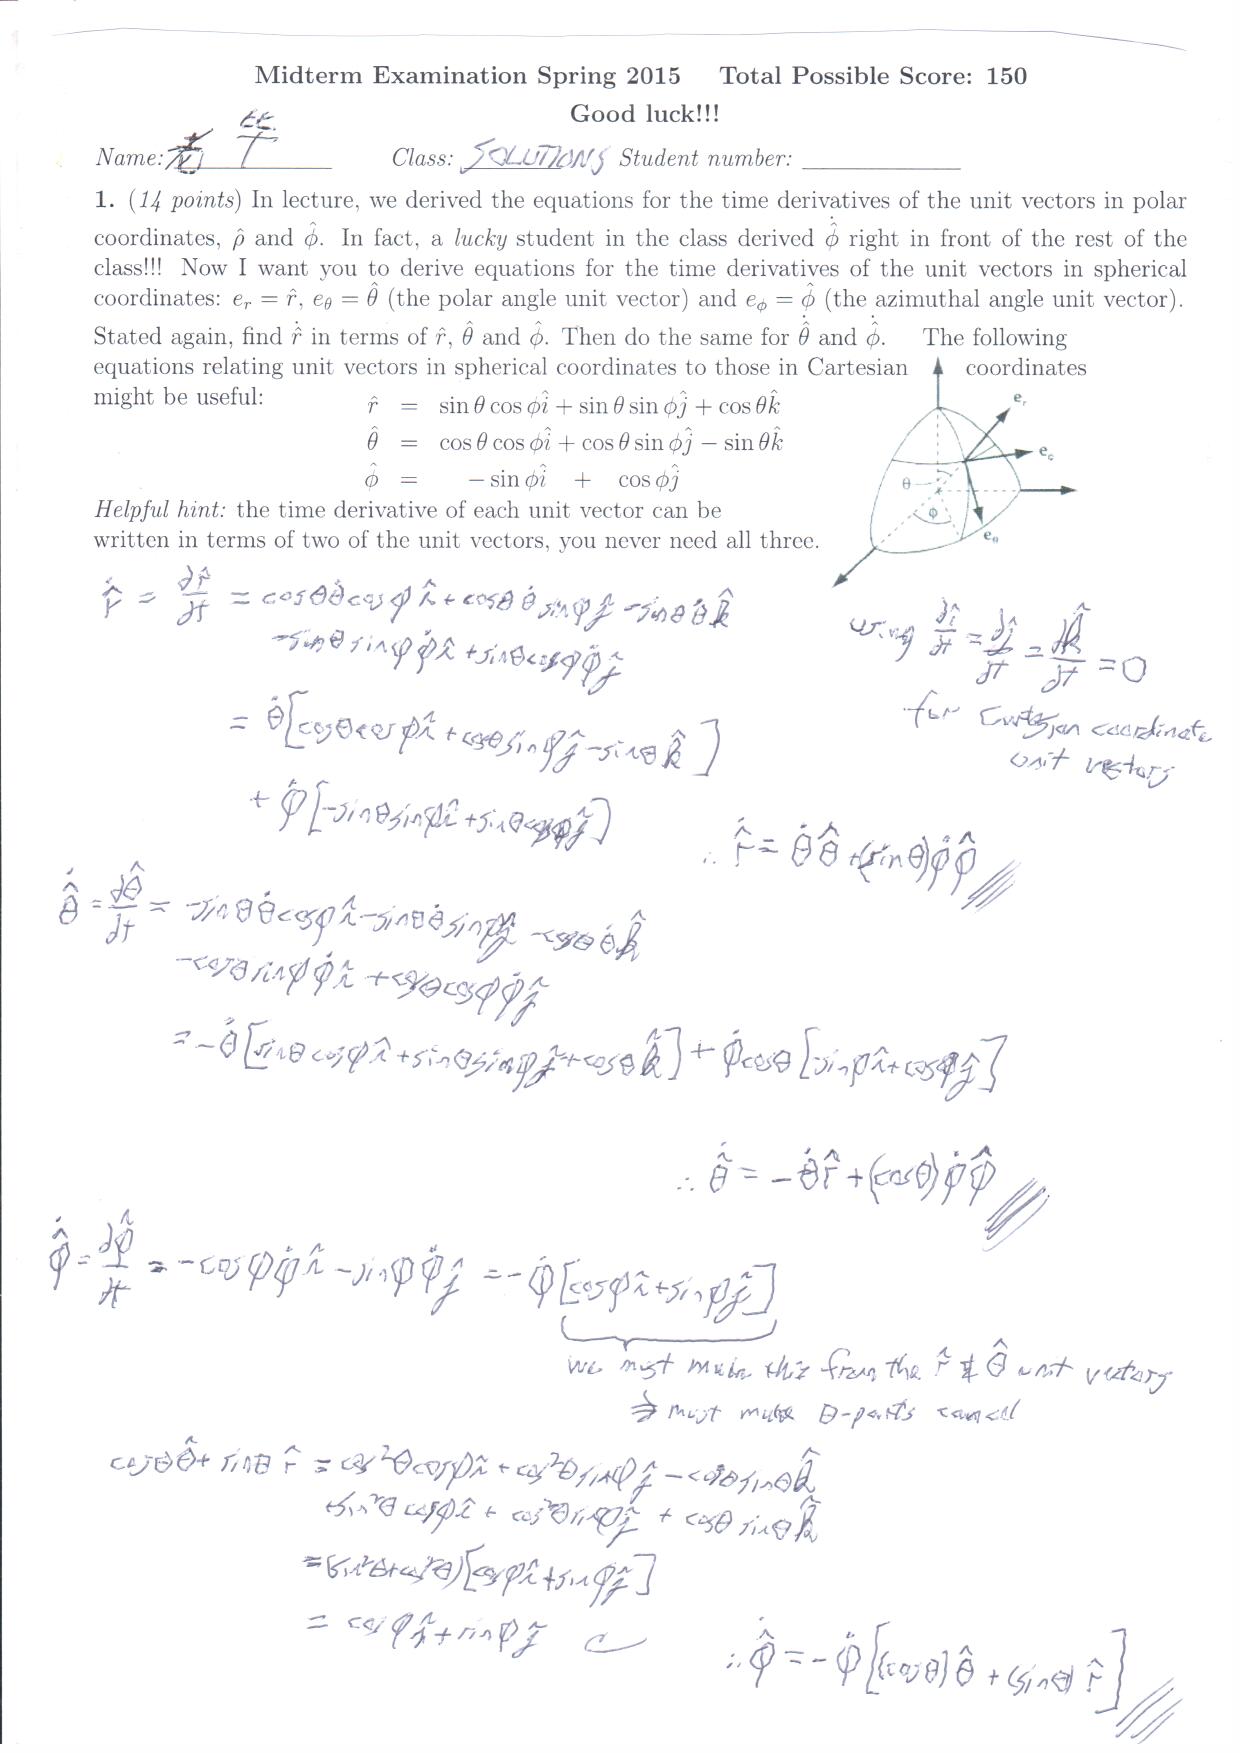 Midterm Examination Spring 2015 Total Possible Score: 150
Good luck!!!
Name: Class: SOLUTIONS Student number:
1. (14 points) In lecture, we derived the equations for the time derivatives of the unit vectors in polar
coordinates, ρ̂ and φ̂. In fact, a lucky student in the class derived φ̂̇ right in front of the rest of the
class!!! Now I want you to derive equations for the time derivatives of the unit vectors in spherical
coordinates: e_r = r̂, e_θ = θ̂ (the polar angle unit vector) and e_φ = φ̂ (the azimuthal angle unit vector).
Stated again, find r̂̇ in terms of r̂, θ̂ and φ̂. Then do the same for θ̂̇ and φ̂̇. The following
equations relating unit vectors in spherical coordinates to those in Cartesian coordinates
might be useful:
r̂ = sin θ cos φ î + sin θ sin φ ĵ + cos θ k̂
θ̂ = cos θ cos φ î + cos θ sin φ ĵ − sin θ k̂
φ̂ = − sin φ î + cos φ ĵ
e_r
θ
φ
e_θ
Helpful hint: the time derivative of each unit vector can be
written in terms of two of the unit vectors, you never need all three.
r̂̇ = dr̂/dt = cosθ θ̇ cosφ î + cosθ θ̇ sinφ ĵ − sinθ θ̇ k̂
−sinθ sinφ φ̇ î + sinθ cosφ φ̇ ĵ
using dî/dt = dĵ/dt = dk̂/dt = 0
for Cartesian coordinate
unit vectors
= θ̇ [cosθ cosφ î + cosθ sinφ ĵ − sinθ k̂]
+ φ̇ [−sinθ sinφ î + sinθ cosφ ĵ]
∴ r̂̇ = θ̇ θ̂ + (sinθ) φ̇ φ̂
θ̂̇ = dθ̂/dt = −sinθ θ̇ cosφ î − sinθ θ̇ sinφ ĵ − cosθ θ̇ k̂
−cosθ sinφ φ̇ î + cosθ cosφ φ̇ ĵ
= −θ̇ [sinθ cosφ î + sinθ sinφ ĵ + cosθ k̂] + φ̇ cosθ [sinφ î + cosφ ĵ]
∴ θ̂̇ = −θ̇ r̂ + (cosθ) φ̇ φ̂
φ̂̇ = dφ̂/dt = −cosφ φ̇ î − sinφ φ̇ ĵ = −φ̇ [cosφ î + sinφ ĵ]
we must make this from the r̂ & θ̂ unit vectors
⇒ must make θ-parts cancel
cosθ θ̂ + sinθ r̂ = cos²θ cosφ î + cos²θ sinφ ĵ − cosθ sinθ k̂
+sin²θ cosφ î + cos²θ sinφ ĵ + cosθ sinθ k̂
= (sin²θ + cos²θ) [cosφ î + sinφ ĵ]
= cosφ î + sinφ ĵ
∴ φ̂̇ = −φ̇ [(cosθ) θ̂ + (sinθ) r̂]